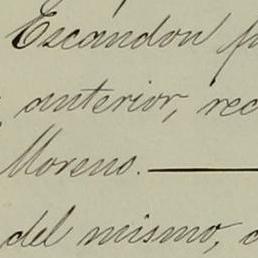 Escandon
anterior, rec
Moreno.
del mismo,